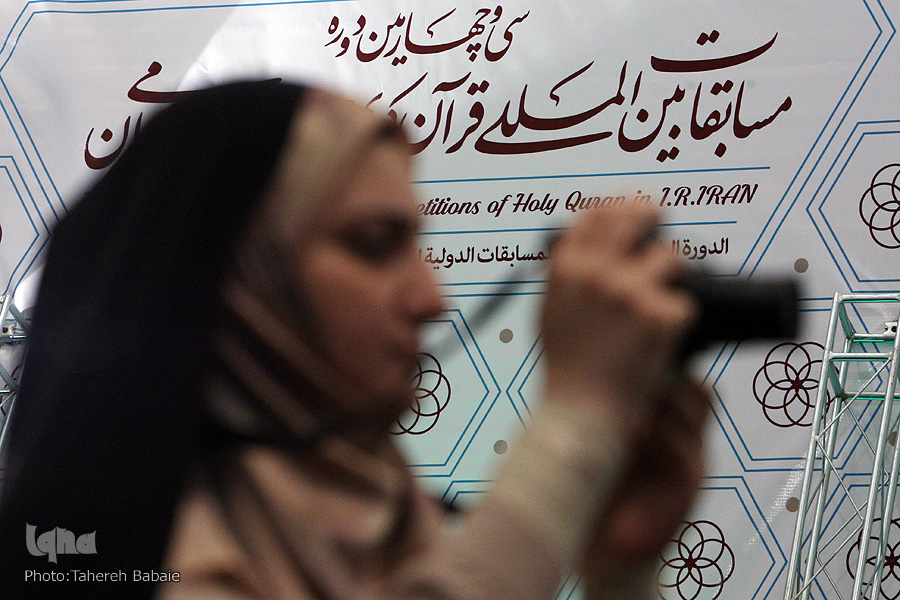 سی و چهارمین دوره
مسابقات بین المللی قرآن
of Holy Quran in I.R.IRAN
الدورة
المسابقات الدولية
iqna
Photo:Tahereh Babaie